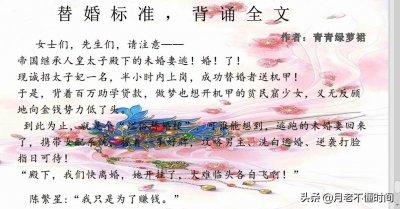 替婚标准，背诵全文
作者：青青绿萝裙
女士们，先生们，请注意——
帝国继承人皇太子殿下的未婚妻逃！婚！了！
现诚招太子妃一名，半小时内上岗，成功替婚者送机甲！
于是，背着百万助学贷款，做梦也想开机甲的贫民窟少女，义无反顾
地向金钱势力低了头
到此为止，就是个 谁能想到，逃跑的未婚妻回来
了，携带女配系统， 攻略男主、洗白逃婚、逆袭打脸
指日可待！
“殿下，我们快离婚，她开挂了，大难临头各自飞啊！”
陈繁星：“我只是为了赚钱。”
头条 @月老不懂时间